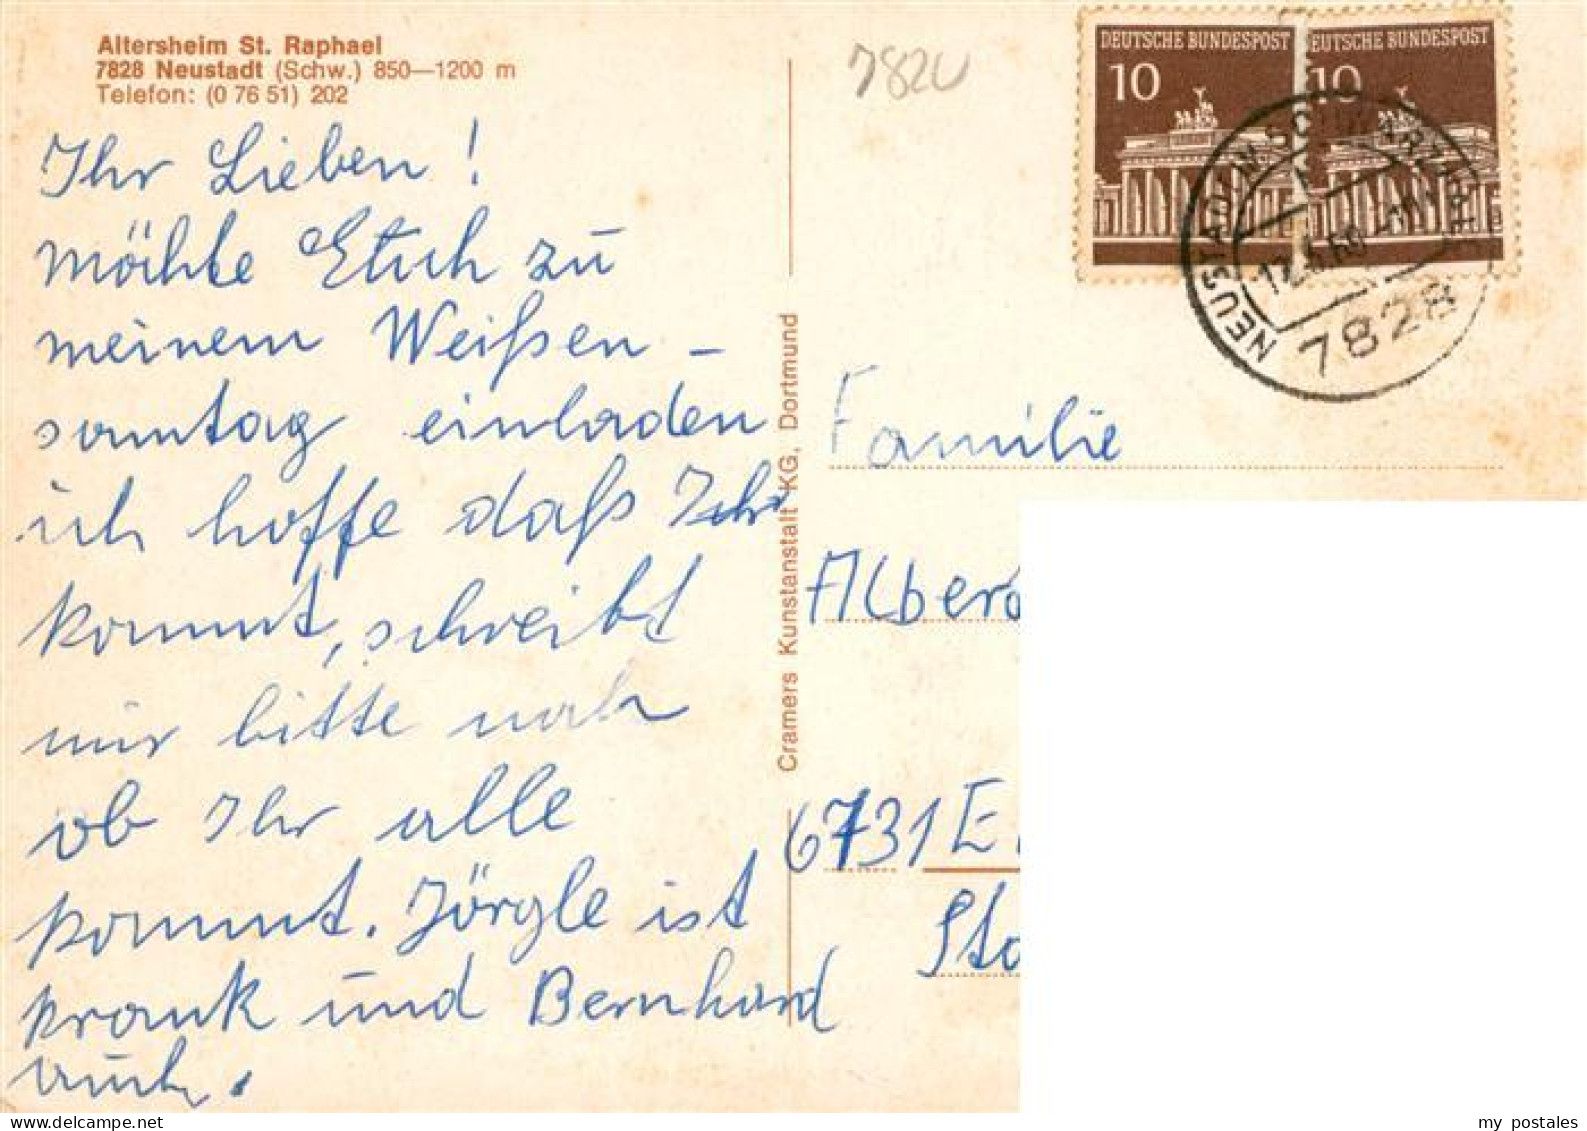 Altersheim St. Raphael
7828 Neustadt (Schw.) 850—1200 m
Telefon: (0 76 51) 202
Ihr Lieben!
möchte Euch zu
meinem Weißen-
sonntag einladen
ich hoffe daß Ihr
kommt, schreibt
mir bitte noch
ob Ihr alle
kommt. Jörgle ist
krank und Bernhard
auch.
Cramers Kunstanstalt KG, Dortmund
782
DEUTSCHE BUNDESPOST
10
EUTSCHE BUNDESPOST
10
NEUSTADT IM SCHWARZWALD
7828
Familie
Albers
6731 E
Sta
my postales